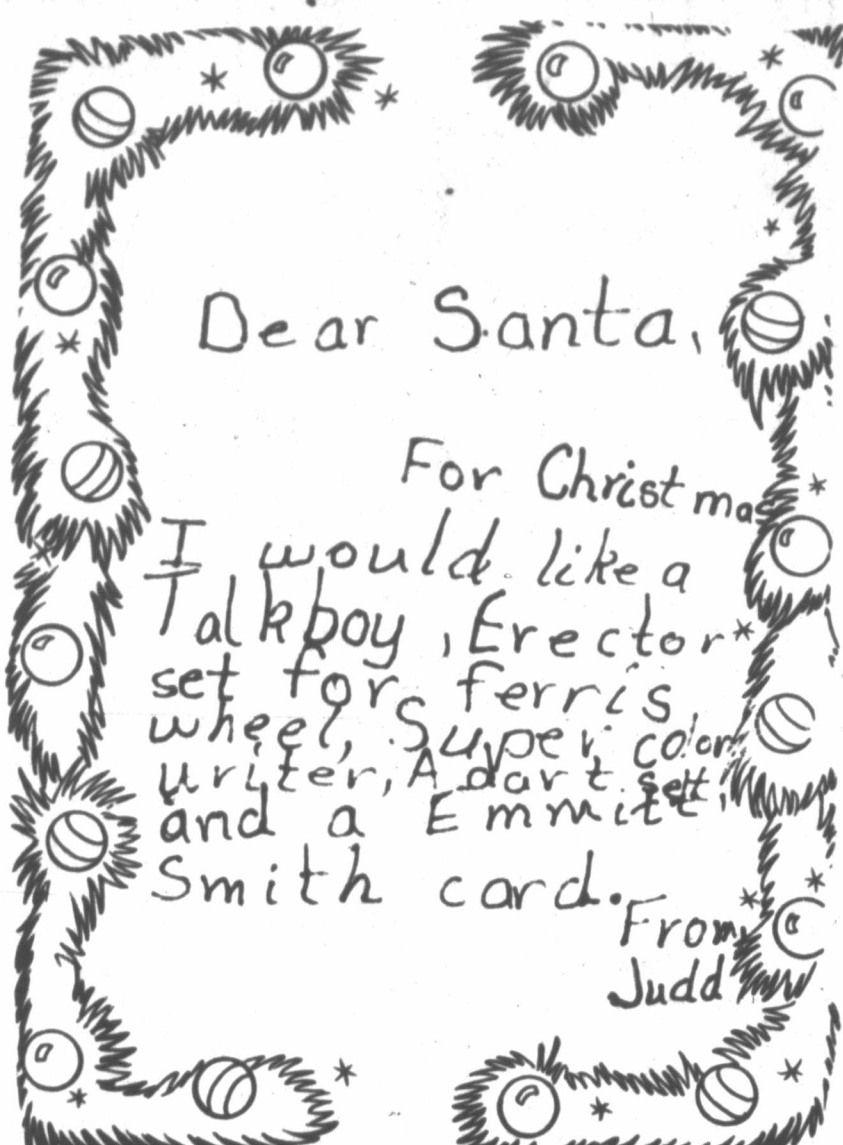 Dear Santa,
For Christmas
I would like a
Talkboy, Erector
set for ferris
wheel, Super color
writer, A dart sett,
and a Emmitt
Smith card.
From,
Judd